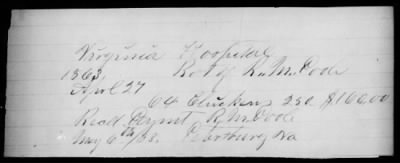 Virginia Hospital
1863. Rot of R. M. Dode
April 27
64 Chickens 2.50 $160.00
Recd Paymt R. M. Dode
May 6th /63. Petersburg Va